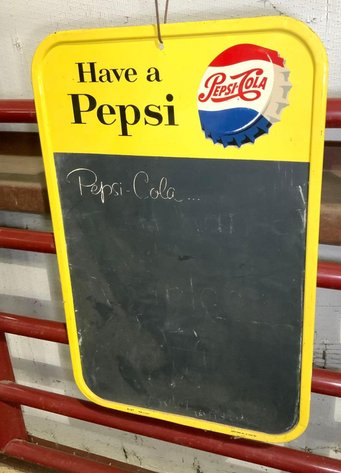 Have a
Pepsi
PEPSI-COLA
Pepsi-Cola...